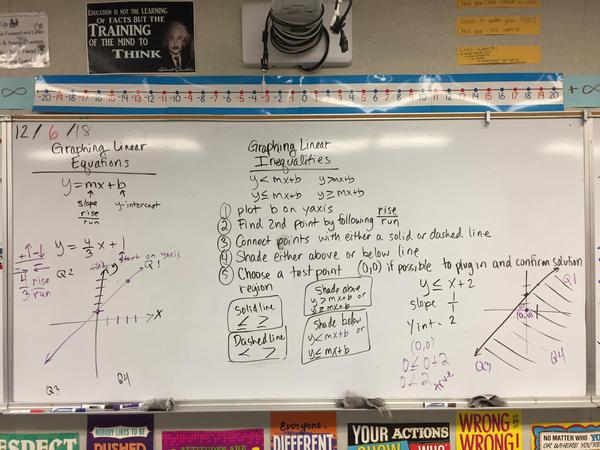 Up
EDUCATION IS NOT THE LEARNING
OF FACTS BUT THE
TRAINING
OF THE MIND TO
THINK
Albert Einstein
-∞
-20 -19 -18 -17 -16 -15 -14 -13 -12 -11 -10 -9 -8 -7 -6 -5 -4 -3 -2 -1 0 1 2 3 4 5 6 7 8 9 10 11 12 13 14 15 16 17 18 19 20
+∞
12/6/18
Graphing Linear
Equations
y=mx+b
slope
rise
run
y-intercept
y = 4/3 x + 1
start on yaxis
4 rise
3 run
Q2
Q1
y
x
Q3
Q4
Graphing Linear
Inequalities
y < mx+b y > mx+b
y ≤ mx+b y ≥ mx+b
① plot b on yaxis
② Find 2nd point by following rise/run
③ Connect points with either a solid or dashed line
④ Shade either above or below line
⑤ Choose a test point (0,0) if possible to plug in and confirm solution
region
Solid line
≤ ≥
Dashed line
< >
Shade above
y > mx+b or
y ≥ mx+b
Shade below
y < mx+b or
y ≤ mx+b
y ≤ x+2
slope 1/1
Y int = 2
(0,0)
0 ≤ 0+2
0 ≤ 2 true
Q1
(0,0)
Q3
Q4
RESPECT
NOBODY LIKES TO BE
PUSHED
ATTITUDES ARE
Everyone is
DIFFERENT
YOUR ACTIONS
SHOW WHO
WRONG
WRONG!
NO MATTER WHO
OR WHERE YOU'RE